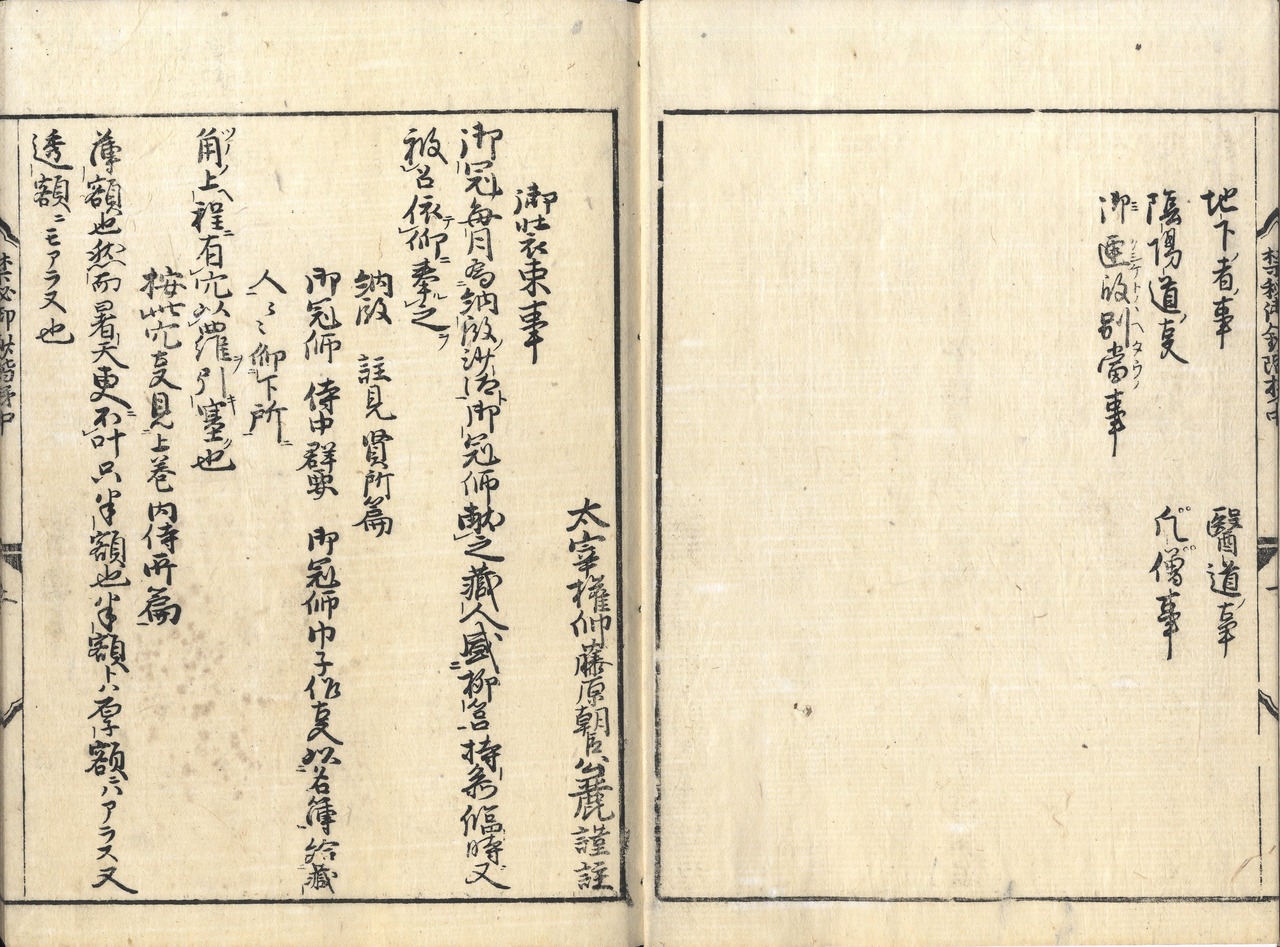 地下者事
醫道事
陰陽道叓
凡僧事
御匣殿別當事
太宰權帥藤原朝臣公麗謹註
御裝束事
御冠每月爲納殿沙汰御冠師獻之藏人盛柳筥持參臨時又
被召依仰奉之
納殿 註見賢所篇
御冠師 侍中群要 御冠師巾子作叓以名簿給藏
人々仰下所
角上程有穴以羅引塞也
按此穴叓見上卷内侍所篇
薄額也然而暑天更不叶只半額也半額トハ厚額ニハアラス又
透額ニモアラヌ也